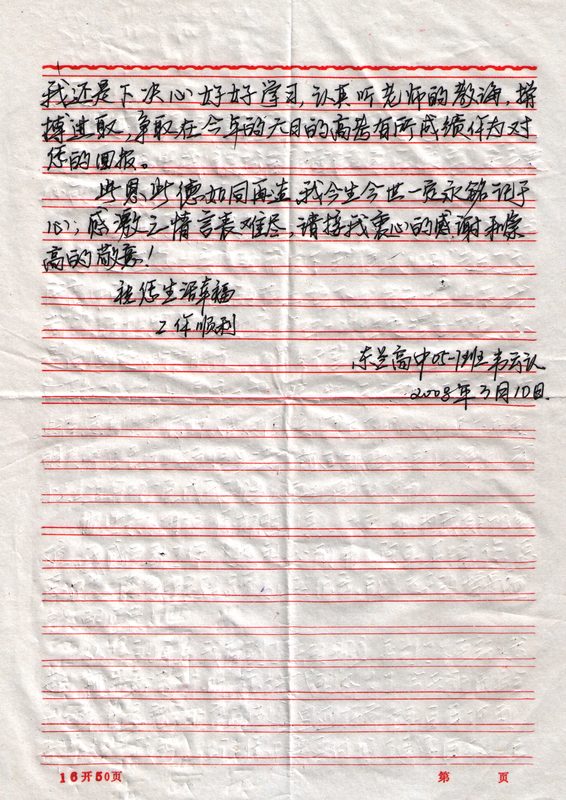 我还是下决心好好学习，认真听老师的教诲，拼
搏进取，争取在今年的六月的高考有所成绩作为对
您的回报。
此恩此德如同再造，我今生今世一定永铭记于
心；感激之情言表难尽，请接我衷心的感谢和崇
高的敬意！
祝您生活幸福
工作顺利
东兰高中05-1班韦云认
2008年3月10日
16开50页
第 页